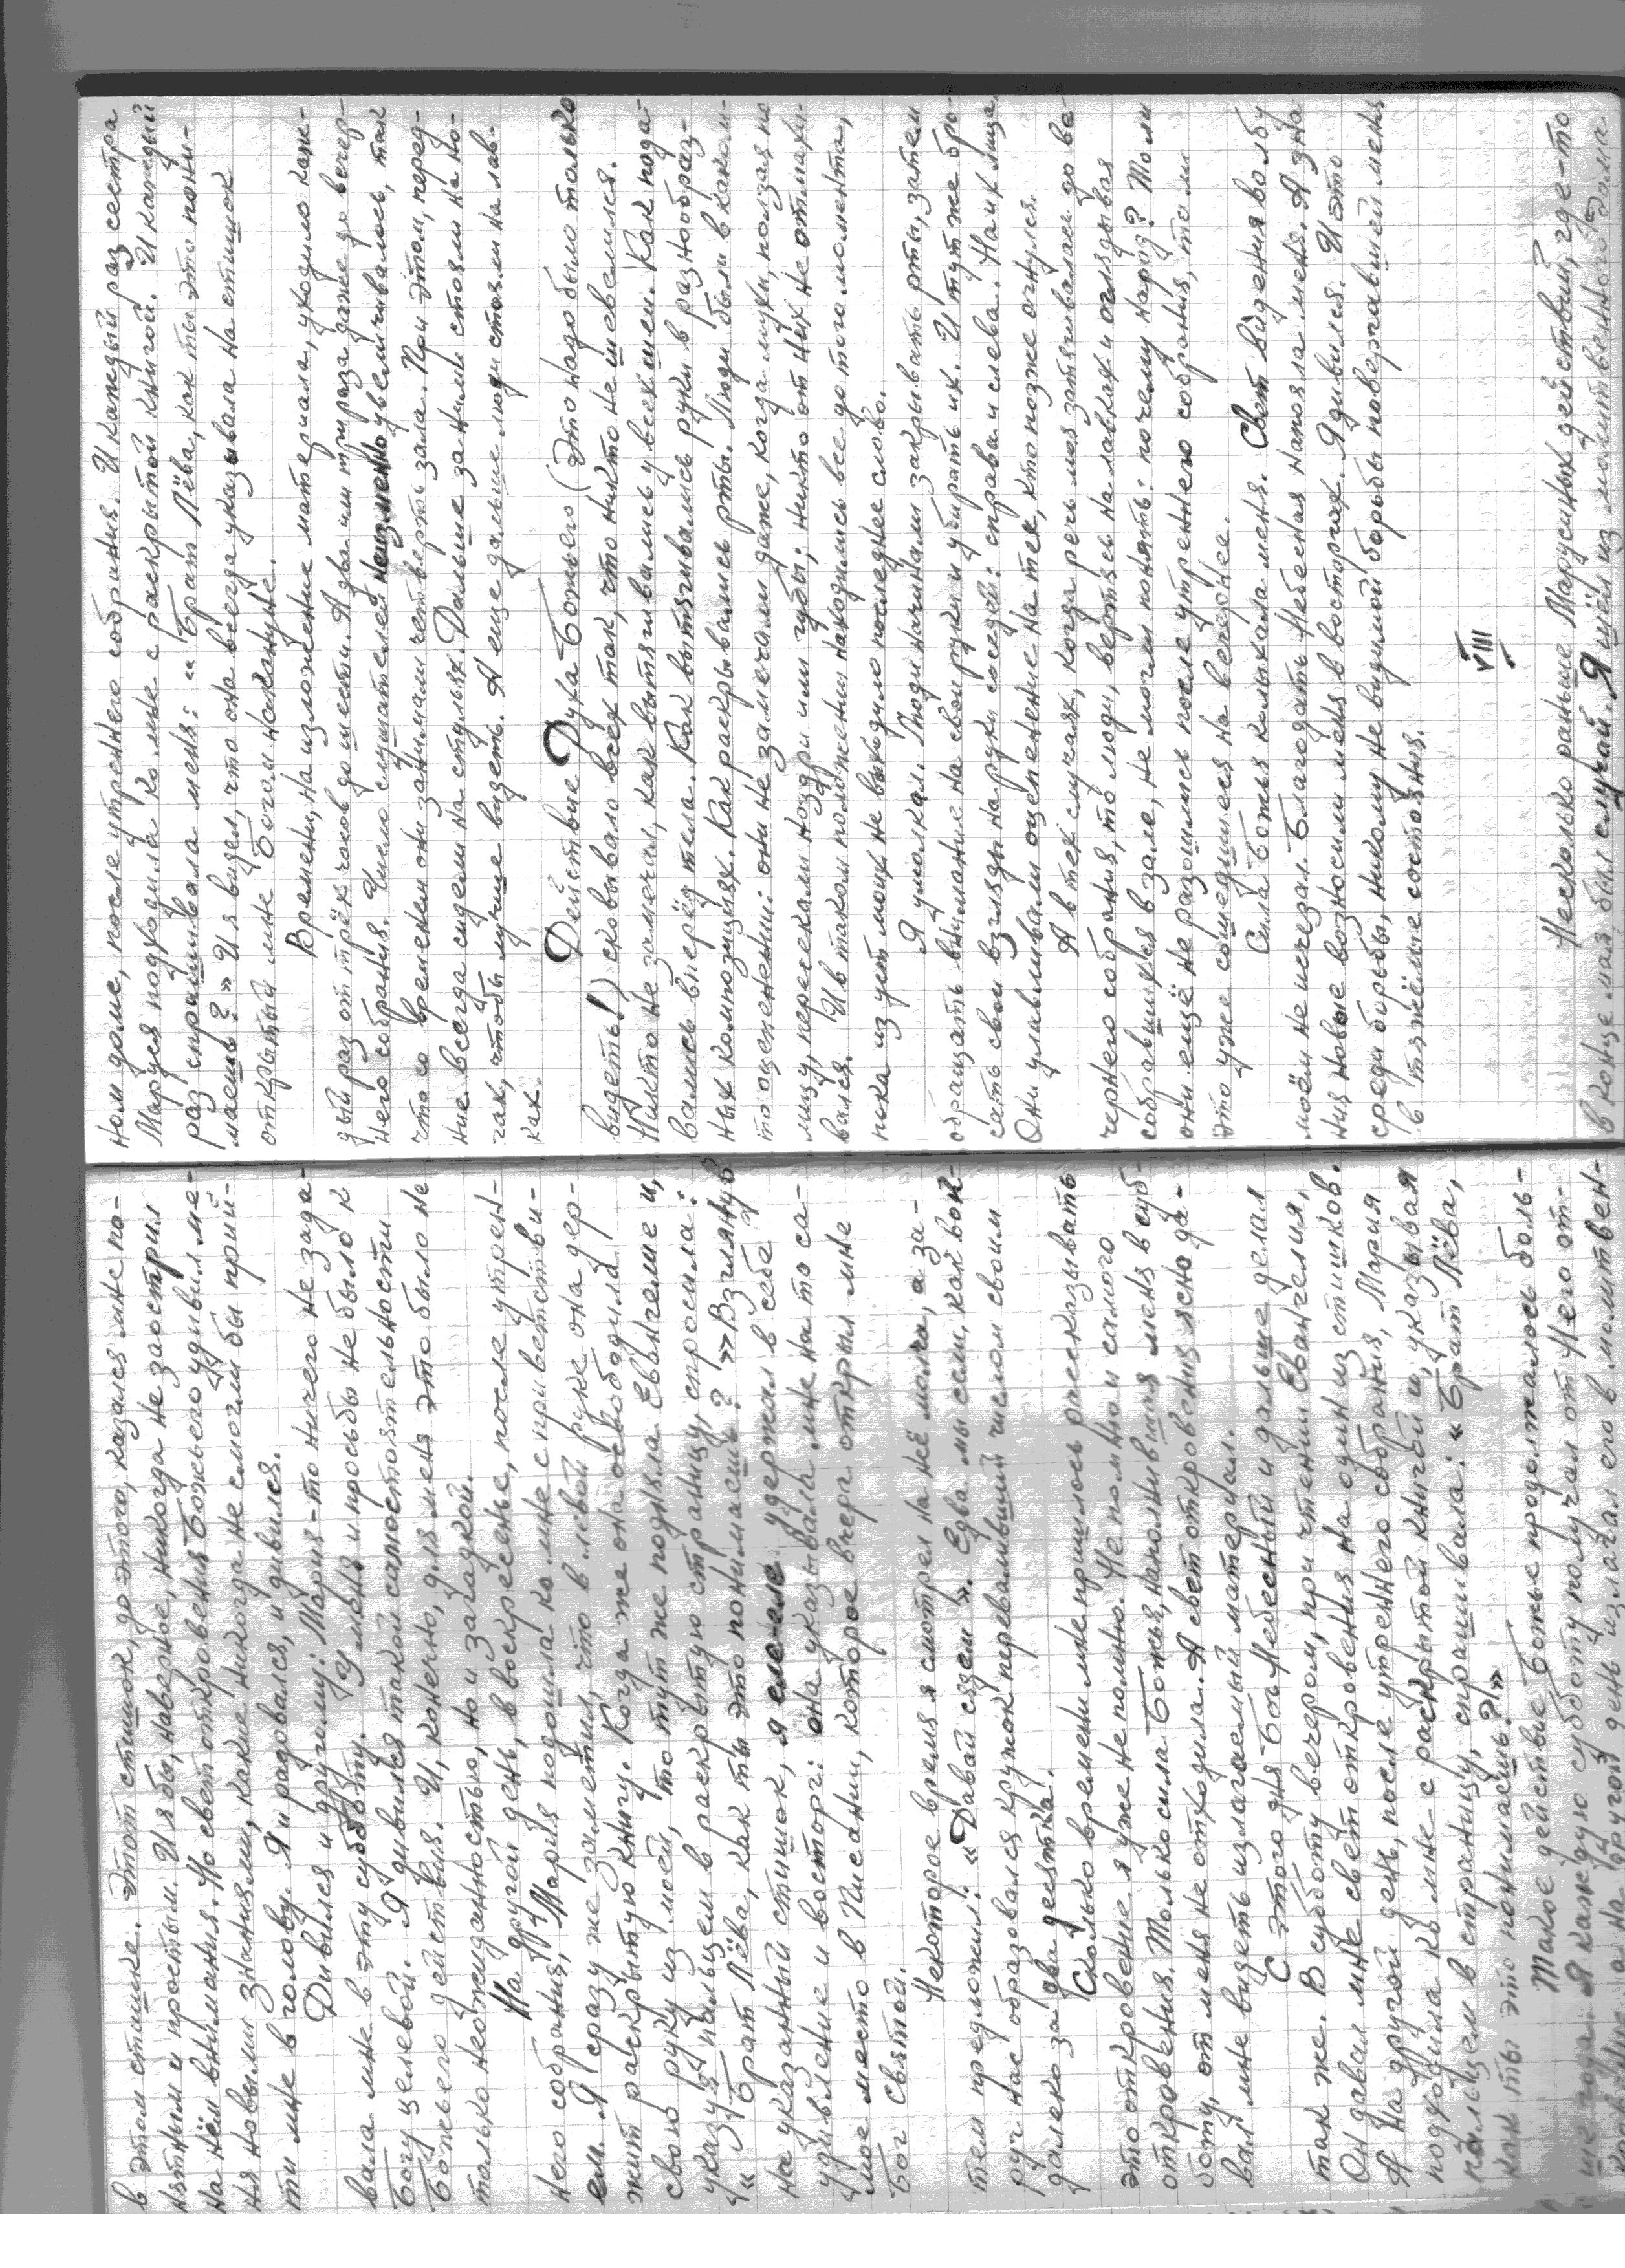 в этом стишке. Этот стишок, до этого, казался мне по-
нятным и простым. И я бы, наверное, никогда не заострил
на нём внимания. Но свет откровения Божьего удивил ме-
ня новыми знаниями, какие никогда не смогли бы прий-
ти мне в голову. Я и радовался, и дивился.
Дивился и другому: Мария-то ничего не зада-
вала мне в эту субботу. И у меня и просьбы не было к
Богу целевой. Я дивился такой самостоятельности
Божьего действия. И, конечно, для меня это было не
только неожиданностью, но и загадкой.
На другой день, в воскресенье, после утрен-
него собрания, Мария подошла ко мне с приветстви-
ем. Я сразу же заметил, что в левой руке она дер-
жит раскрытую книгу. Когда же она освободила
свою руку из моей, то тут же подняла Евангелие и,
указуя пальцем в раскрытую страницу, спросила:
« Брат Лёва, как ты это понимаешь? »» Взглянув
на указанный стишок, я еле-еле удержал в себе
удивление и восторг: она указывала мне на то са-
мое место в Писании, которое вчера открыл мне
Бог Святой.
Некоторое время я смотрел на неё молча, а за-
тем предложил: «Давай сядем». Едва мы сели, как вок-
руг нас образовался кружок переваливший числом своим
далеко за два десятка.
Сколько времени мне пришлось рассказывать
это откровение я уже не помню. Не помню и самого
откровения. Только сила Божья, наполнившая меня в суб-
боту, от меня не отходила. А свет откровения ясно да-
вал мне видеть излагаемый материал.
С этого дня Бог Небесный и дальше делал
так же. В субботу вечером, при чтении Евангелия,
Он давал мне свет откровения на один из стишков.
А на другой день, после утреннего собрания, Мария
подходила ко мне с раскрытой книгой и, указывая
пальцем в страницу, спрашивала: «Брат Лёва,
как ты это понимаешь?»
Такое действие Божье продолжалось боль-
ше года. Я каждую субботу получал от Него от-
а на другой день излагал его в молитвен-
ном доме, после утреннего собрания. И каждый раз сестра
Маруся подходила ко мне с раскрытой книгой. И каждый
раз спрашивала меня: « Брат Лёва, как ты это пони-
маешь? » И я видел, что она всегда указывала на стишок
открытый мне Богом накануне.
Времени, на изложение материала, уходило каж-
дый раз от трёх часов до шести. А два или три раза даже до вечер-
него собрания. Число слушателей неизменно увеличивалось, так
что со временем они занимали четверть зала. При этом, перед-
ние всегда сидели на стульях. Дальше за ними стояли на но-
гах, чтобы лучше видеть. А еще дальше люди стояли на лав-
ках.
Действие Духа Божьего (это надо было только
видеть!) сковывало всех так, что никто не шевелился.
Никто не замечал, как вытягивались у всех шеи. Как пода-
вались вперёд тела. Как вытягивались руки в разнообраз-
ных композициях. Как раскрывались рты. Люди были в каком-
то оцепенении: они не замечали даже, когда мухи, ползая по
лицу, пересекали ноздри или губы; никто от них не отмахи-
вался. И в таком положении находились все до того момента,
пока из уст моих не выходило последнее слово.
Я умолкал. Люди начинали закрывать рты, затем
обращать внимание на свои руки и убирать их. И тут же бро-
сать свои взгляды на руки соседей: справа и слева. На их лица.
Они улавливали оцепенение на тех, кто позже очнулся.
А в тех случаях, когда речь моя затягивалась до ве-
чернего собрания, то люди, вертясь на лавках и оглядывая
собравшихся в зале, не могли понять: почему народ? То ли
они ещё не разошлись после утреннего собрания, то ли
это уже сошедшиеся на вечернее.
Сила Божья колыхала меня. Свет видения во лбу
моём не исчезал. Благодать Небесная напояла меня. А зна-
ния новые возносили меня в восторг. Я дивился. И это
среди борьбы, никому не видимой борьбы повергавшей меня
в тяжёлые состояния.
VIII
Несколько раньше Марусиных действий, где-то
в конце мая, был случай. Я шёл из молитвенного дома